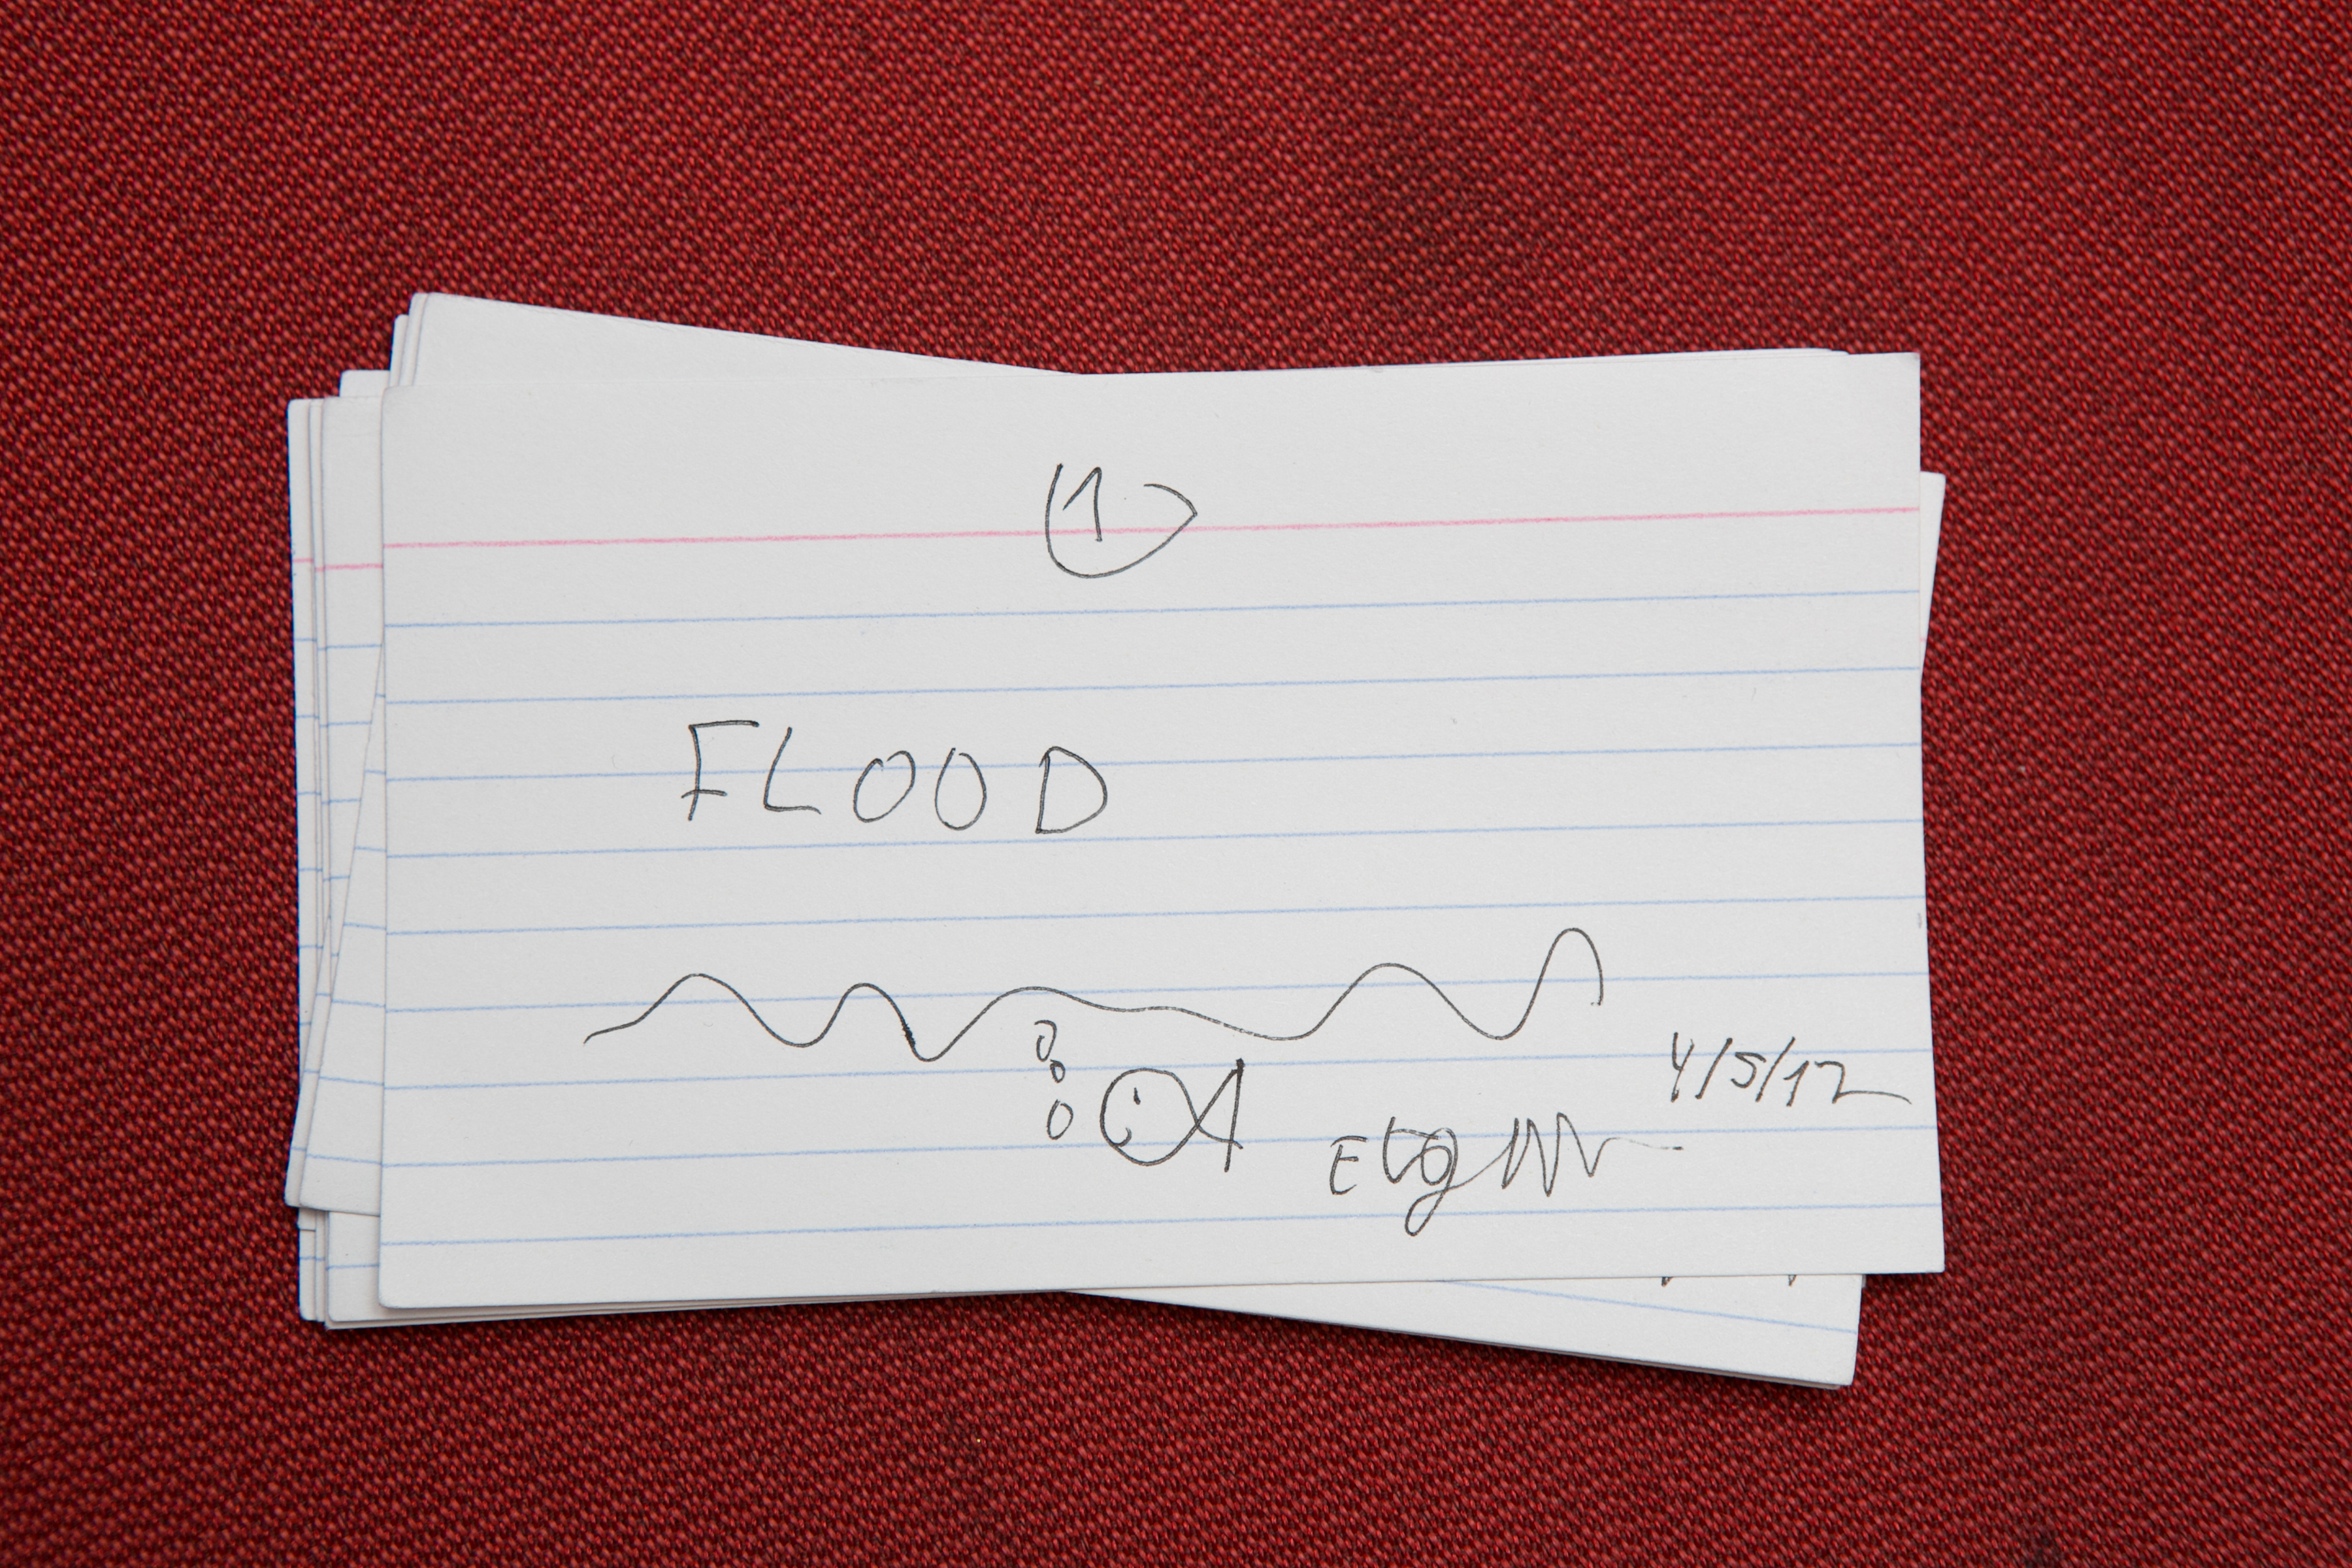 1
FLOOD
4/5/12